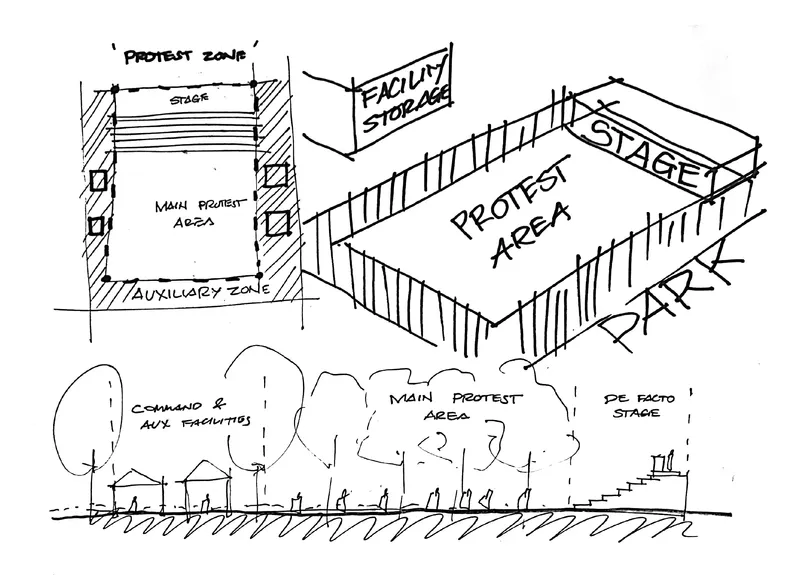 'PROTEST ZONE'
STAGE
MAIN PROTEST
AREA
AUXILIARY ZONE
FACILITY
STORAGE
STAGE
PROTEST
AREA
PARK
COMMAND &
AUX FACILITIES
MAIN PROTEST
AREA
DE FACTO
STAGE